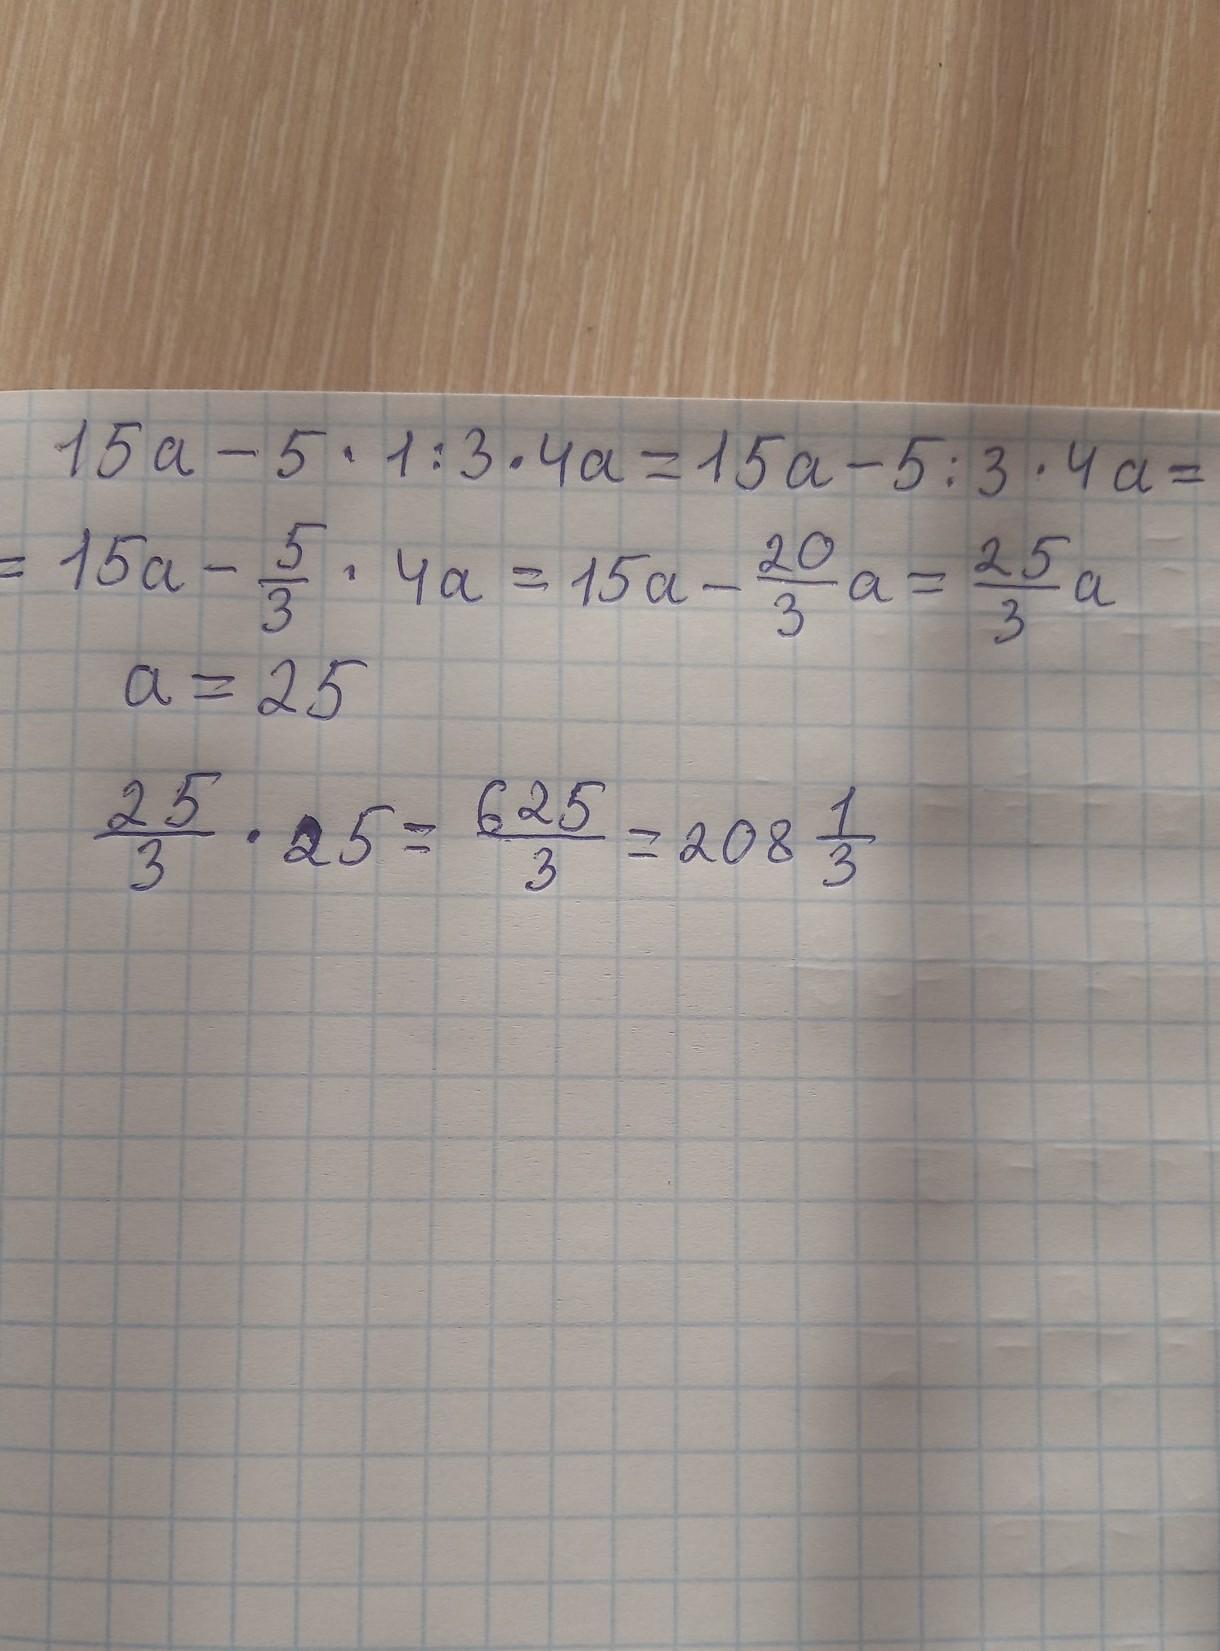 15a - 5 · 1 : 3 · 4a = 15a - 5 : 3 · 4a =
= 15a - 5/3 · 4a = 15a - 20/3 a = 25/3 a
a = 25
25/3 · 25 = 625/3 = 208 1/3